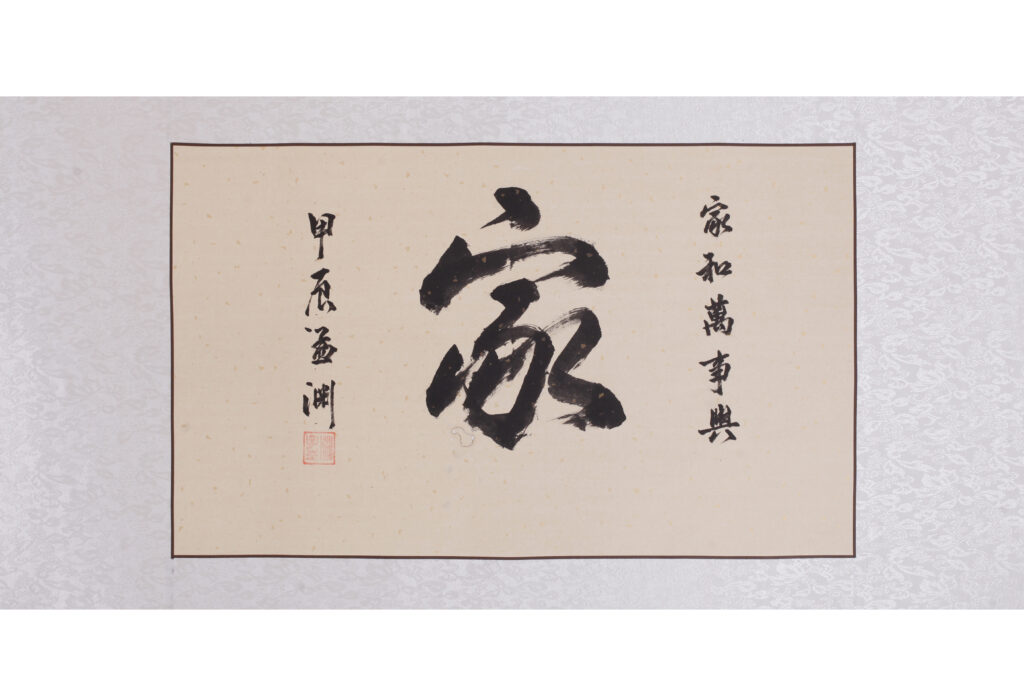 家和萬事興
家
甲辰 淵